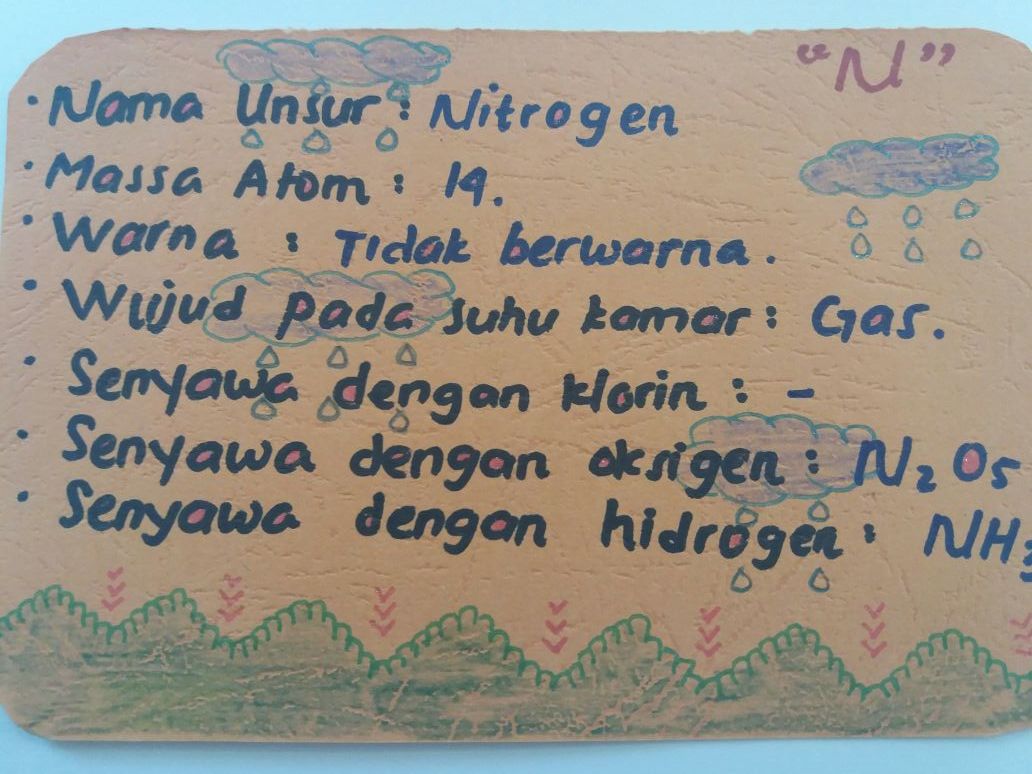 "N"
· Nama Unsur : Nitrogen
· Massa Atom : 14.
· Warna : Tidak berwarna.
· Wujud pada suhu kamar : Gas.
· Senyawa dengan klorin : -
· Senyawa dengan oksigen : N₂O₅
· Senyawa dengan hidrogen : NH₃